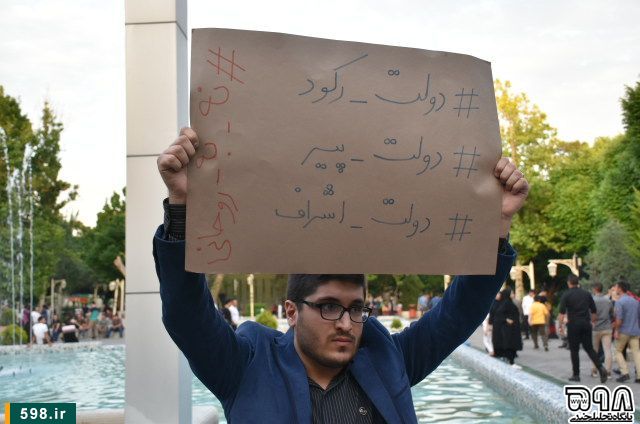 #دولت_رکود
#دولت_پیر
#دولت_اشراف
#نه_به_روحانی
598.ir
۵۹۸
www
پایگاه تحلیلی خبری